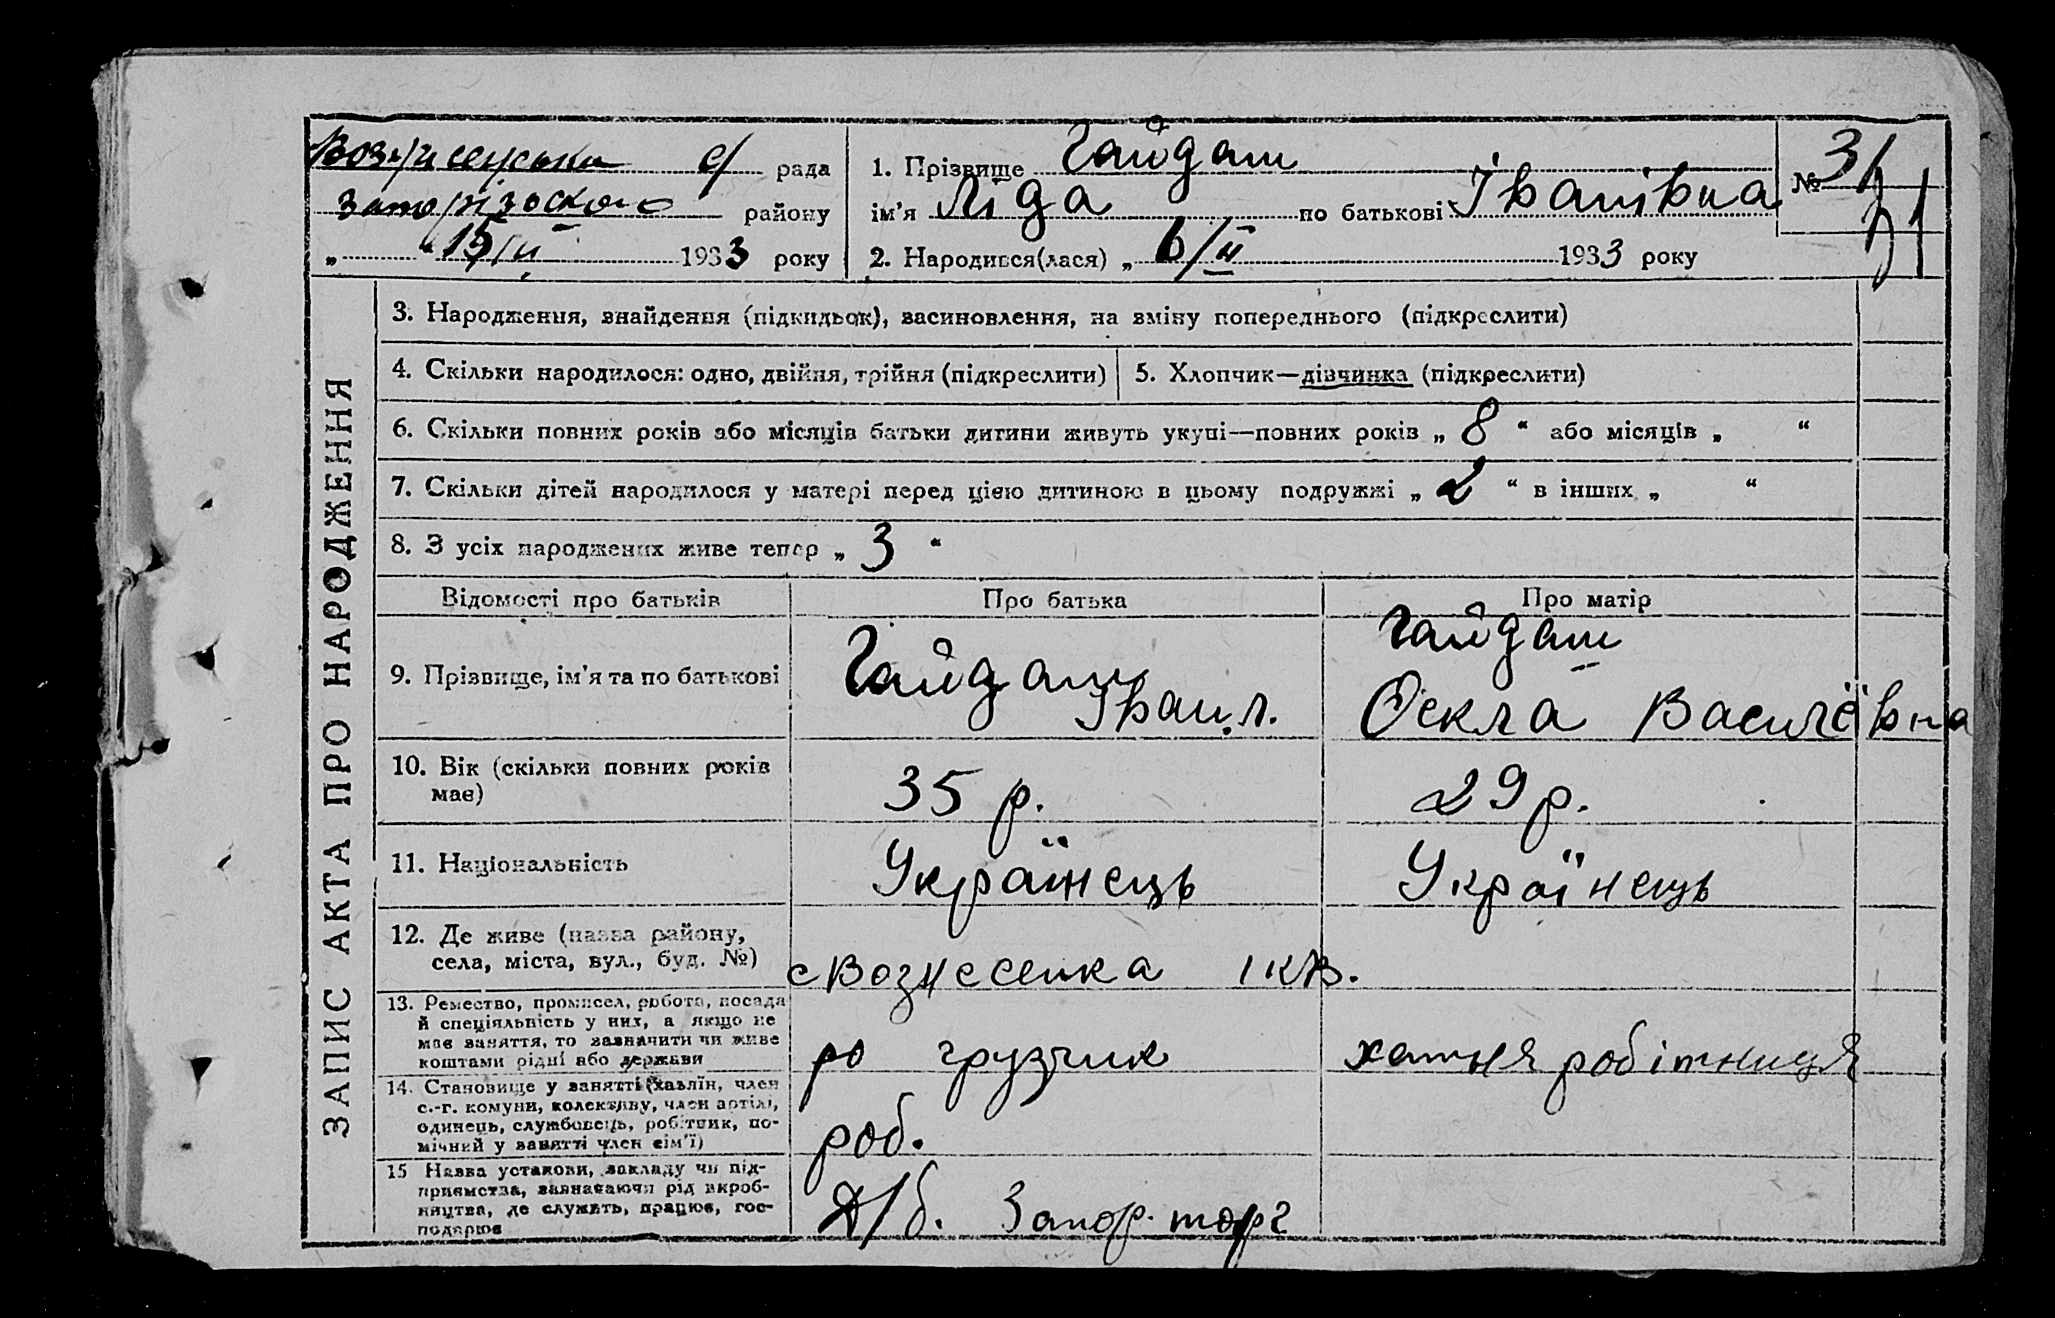 Вознесенська с/ рада
Запорізького району
„ “ 15/II 1933 року
1. Прізвище Гайдаш
ім’я Ліда по батькові Іванівна
2. Народився(лася) „ 6/II 1933 року
№ 31
ЗАПИС АКТА ПРО НАРОДЖЕННЯ
3. Народження, знайдення (підкидьок), засиновлення, на зміну попереднього (підкреслити)
4. Скільки народилося: одно, двійня, трійня (підкреслити) 5. Хлопчик—дівчинка (підкреслити)
6. Скільки повних років або місяців батьки дитини живуть укупі—повних років „ 8 “ або місяців „ “
7. Скільки дітей народилося у матері перед цією дитиною в цьому подружжі „ 2 “ в інших „ “
8. З усіх народжених живе тепер „ 3 “
Відомості про батьків Про батька Про матір
9. Прізвище, ім’я та по батькові
Гайдаш
Іван Л.
Гайдаш
Оекла Василёвна
10. Вік (скільки повних років
має)
35 р. 29 р.
11. Національність
Українець Українець
12. Де живе (назва району,
села, міста, вул., буд. №)
с Вознесенка 1 кв.
13. Ремество, промисел, робота, посада
й спеціяльність у них, а якщо не
має заняття, то зазначити чи живе
коштами рідні або держави
грузчик хатня робітниця
14. Становище у занятті (хазяїн, член
с.-г. комуни, колективу, член артілі,
одинець, службовець, робітник, по-
мічний у занятті член сім’ї)
роб.
15 Назва установи, закладу чи під-
приємства, зазначаючи рід вироб-
ництва, де служить, працює, гос-
подарює
Д/б. Запор. торг